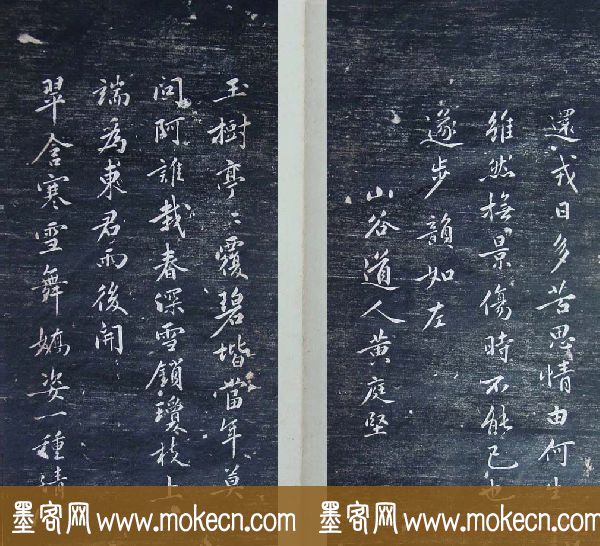 還我日多苦思情由何生
雖然撫景傷時不能已也
遂步韻如左
山谷道人黃庭堅
玉樹亭〻覆碧堦當年莫
問阿誰栽春深雪鎖瓊枝上
端為東君雨後開
翠含寒雪舞嬌姿一種清
墨客网 www.mokecn.com
墨客网 www.mokecn.com